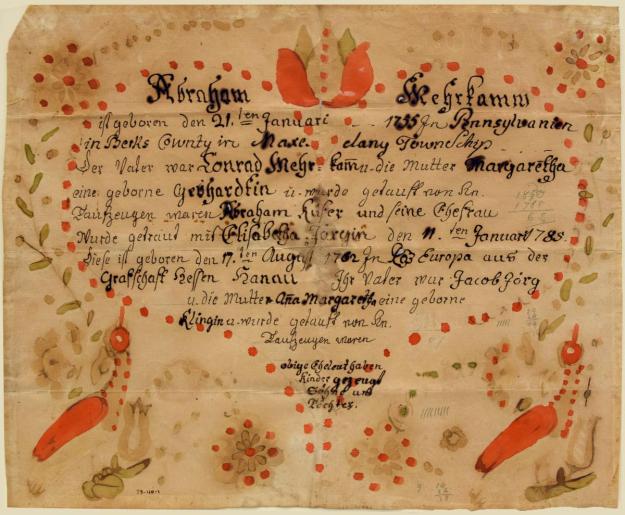 Abraham Mehrkamm
ist geboren den 21.ten Januari 1755 In Pennsylvanien
in Berks County in Maxe= dany Township
Der Vater war Conrad Mehr=kam u. die Mutter Margaretha
eine geborne Gebhardtin u. wurde getauft von Hn.
Taufzeugen waren Abraham Kifer und seine Ehefrau
Wurde getraut mit Elisabetha Jörgin den 11.ten Januari 1785.
Diese ist geboren den 17.ten August 1762 In Europa aus der
Grafschaft Hessen Hanau Ihr Vater war Jacob Jörg
u. die Mutter Aña Margareth eine geborne
Klingin u. wurde getauft von Hn.
Taufzeugen waren
obige Eheleut haben
Kinder gezeugt
Söhne und
Töchter.